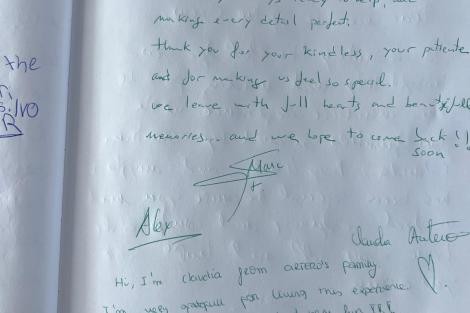 making every detail perfect.
thank you for your kindless, your patiente
and for making us feel so special.
we leave with full hearts and beautifull
memories... and we hope to come back !!
soon
Marc
Alex
Claudia Artero
Hi, I'm claudia from ARTERO's family
I'm very gratefull for living this experience.
the